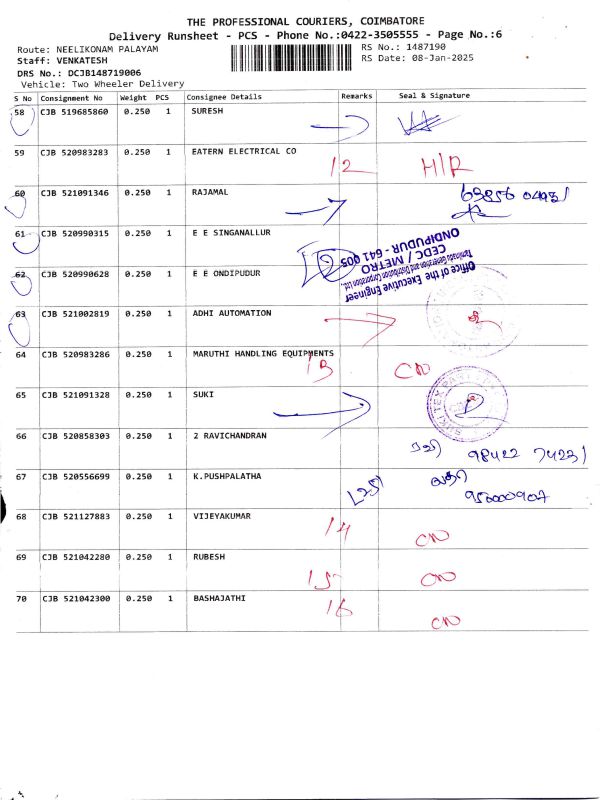 THE PROFESSIONAL COURIERS, COIMBATORE
Delivery Runsheet - PCS - Phone No.:0422-3505555 - Page No.:6
Route: NEELIKONAM PALAYAM
RS No.: 1487190
Staff: VENKATESH
RS Date: 08-Jan-2025
DRS No.: DCJB148719006
Vehicle: Two Wheeler Delivery
S No Consignment No Weight PCS Consignee Details Remarks Seal & Signature
58 CJB 519685860 0.250 1 SURESH
59 CJB 520983283 0.250 1 EATERN ELECTRICAL CO 12 H/R
60 CJB 521091346 0.250 1 RAJAMAL
61 CJB 520990315 0.250 1 E E SINGANALLUR
62 CJB 520990628 0.250 1 E E ONDIPUDUR
Office of the Executive Engineer
Tamilnadu Generation and Distribution Corporation Ltd.,
CEDC / METRO
ONDIPUDUR - 641 005
63 CJB 521002819 0.250 1 ADHI AUTOMATION
64 CJB 520983286 0.250 1 MARUTHI HANDLING EQUIPMENTS 13 CN
65 CJB 521091328 0.250 1 SUKI
66 CJB 520858303 0.250 1 2 RAVICHANDRAN ரவி 98422 74231
67 CJB 520556699 0.250 1 K.PUSHPALATHA
68 CJB 521127883 0.250 1 VIJEYAKUMAR 14 CN
69 CJB 521042280 0.250 1 RUBESH 15 CN
70 CJB 521042300 0.250 1 BASHAJATHI 16 CN